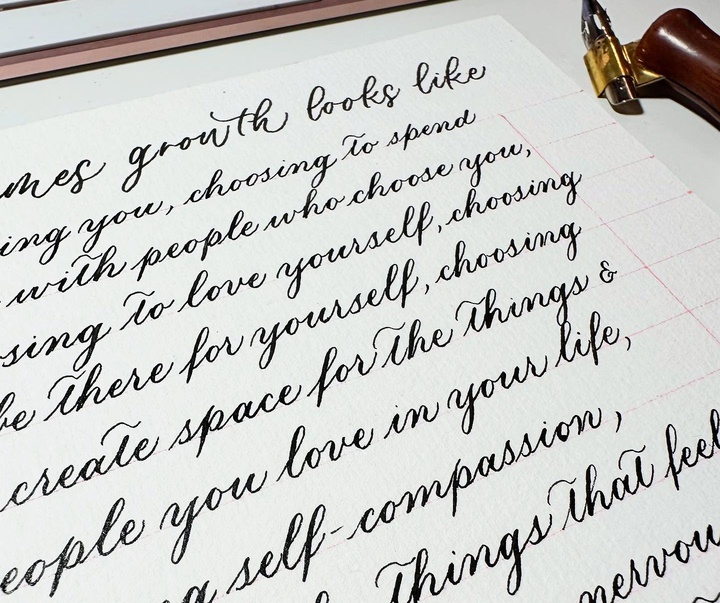 growth looks like
you, choosing to spend
with people who choose you,
to love yourself, choosing
there for yourself, choosing
create space for the things &
you love in your life,
self-compassion,
things that feel